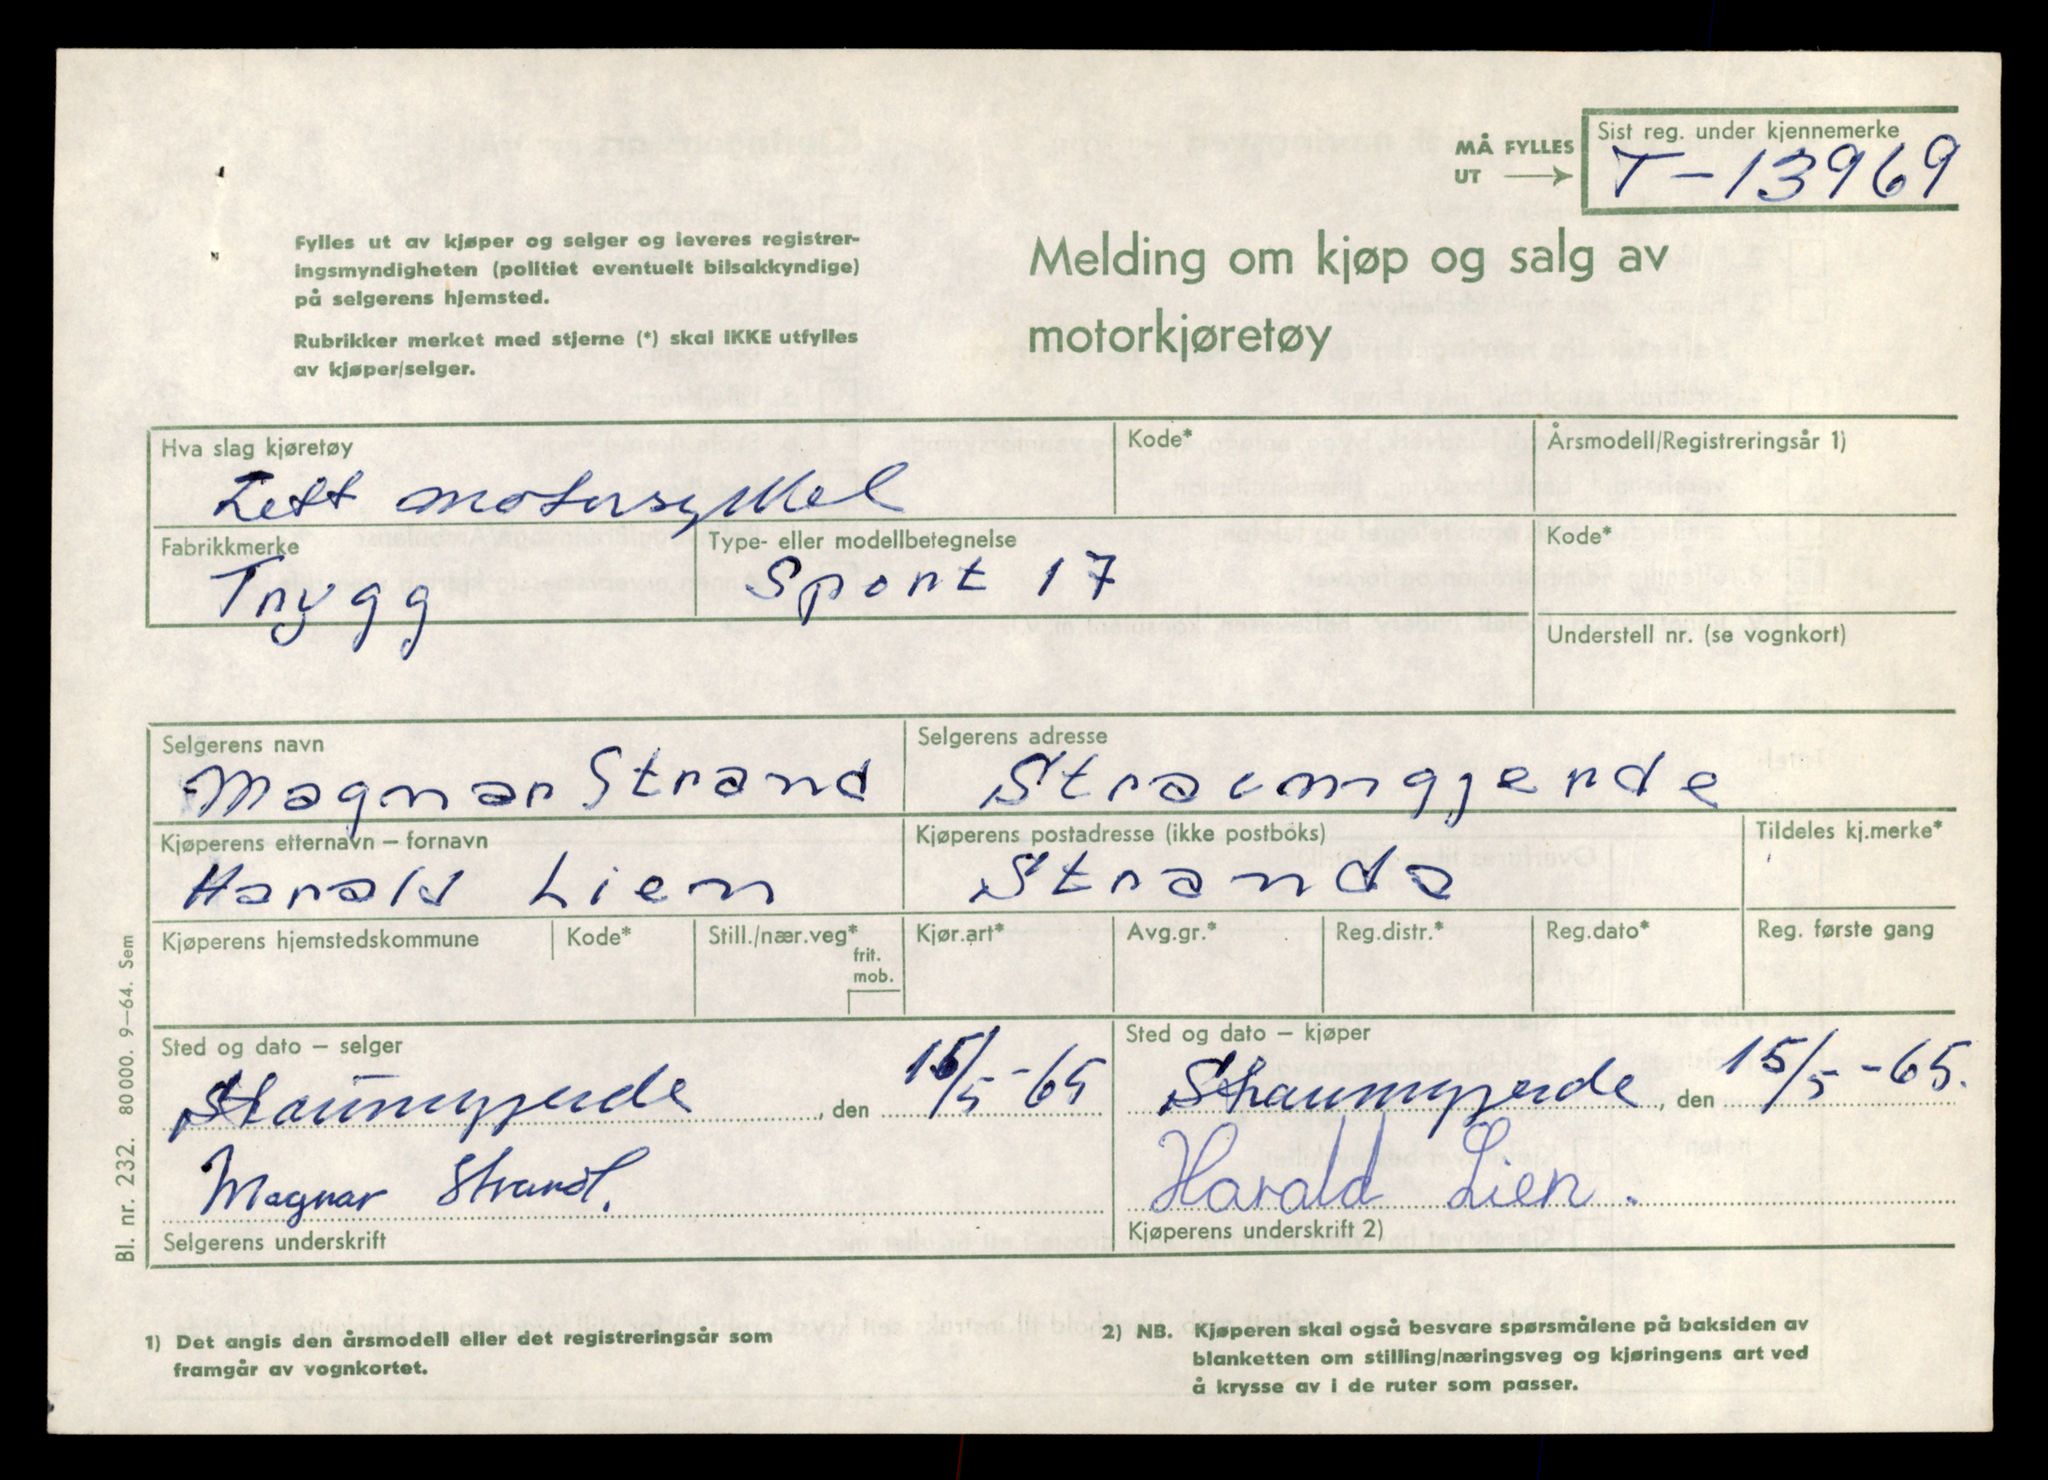 MÅ FYLLES
UT
Sist reg. under kjennemerke
T-13969
Fylles ut av kjøper og selger og leveres registrer-
ingsmyndigheten (politiet eventuelt bilsakkyndige)
på selgerens hjemsted.
Rubrikker merket med stjerne (*) skal IKKE utfylles
av kjøper/selger.
Melding om kjøp og salg av
motorkjøretøy
Hva slag kjøretøy
Kode*
Årsmodell/Registreringsår 1)
Lett motorsykkel
Fabrikkmerke
Type- eller modellbetegnelse
Kode*
Trygg
Sport 17
Understell nr. (se vognkort)
Selgerens navn
Selgerens adresse
Magnar Strand
Straumgjerde
Kjøperens etternavn – fornavn
Kjøperens postadresse (ikke postboks)
Tildeles kj.merke*
Harald Lien
Stranda
Kjøperens hjemstedskommune
Kode*
Still./nær.veg*
frit.
mob.
Kjør.art*
Avg.gr.*
Reg.distr.*
Reg.dato*
Reg. første gang
Sted og dato – selger
Sted og dato – kjøper
Straumgjerde, den 15/5-65
Straumgjerde, den 15/5-65.
Magnar Strand.
Harald Lien.
Selgerens underskrift
Kjøperens underskrift 2)
Bl. nr. 232. 80000. 9–64. Sem
1) Det angis den årsmodell eller det registreringsår som
framgår av vognkortet.
2) NB. Kjøperen skal også besvare spørsmålene på baksiden av
blanketten om stilling/næringsveg og kjøringens art ved
å krysse av i de ruter som passer.